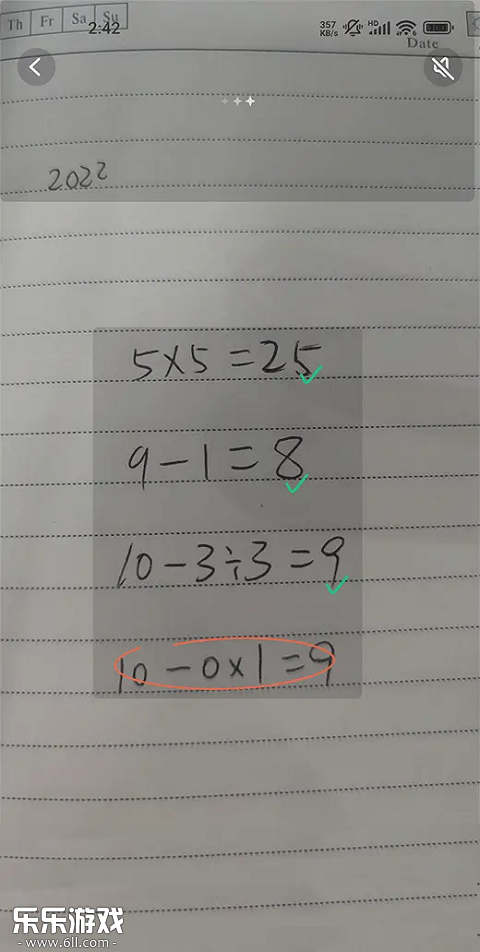 Th Fr Sa Su
2:42
357 KB/s HD
Date
2022
5×5=25
9-1=8
10-3÷3=9
10-0×1=9
乐乐游戏
-www.6ll.com-